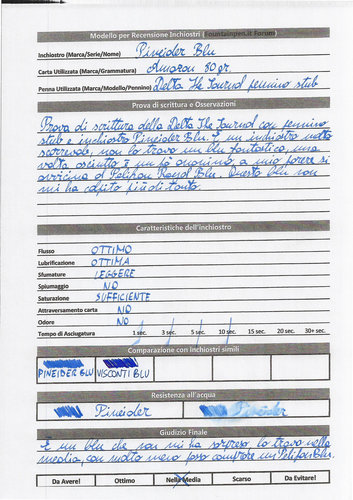 Modello per Recensione Inchiostri (Fountainpen.it Forum)
Inchiostro (Marca/Serie/Nome) Pineider Blu
Carta Utilizzata (Marca/Grammatura) Amazon 80 gr.
Penna Utilizzata (Marca/Modello/Pennino) Delta The Journal pennino stub
Prova di scrittura e Osservazioni
Prova di scrittura della Delta The Journal con pennino
stub e inchiostro Pineider Blu. È un inchiostro molto
scorrevole, non lo trovo un blu fantastico, una
volta asciutto è un po' anonimo, a mio parere si
avvicina al Pelikan Royal Blu. Questo blu non
mi ha colpito più di tanto.
Caratteristiche dell'inchiostro
Flusso OTTIMO
Lubrificazione OTTIMA
Sfumature LEGGERE
Spiumaggio NO
Saturazione SUFFICIENTE
Attraversamento carta NO
Odore NO
Tempo di Asciugatura 1 sec. 3 sec. 5 sec. 10 sec. 15 sec. 20 sec. 25 sec. 30+ sec.
Comparazione con inchiostri simili
PINEIDER BLU VISCONTI BLU
Resistenza all'acqua
Pineider Pineider
Giudizio Finale
È un blu che non mi ha sorpreso lo trovo nella
media, con molto meno posso comprare un Pelikan Blu.
Da Avere! Ottimo Nella Media Scarso Da Evitare!